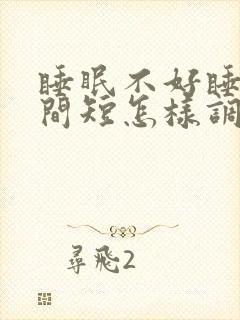 睡眠不好睡
間短怎樣調
尋飛2